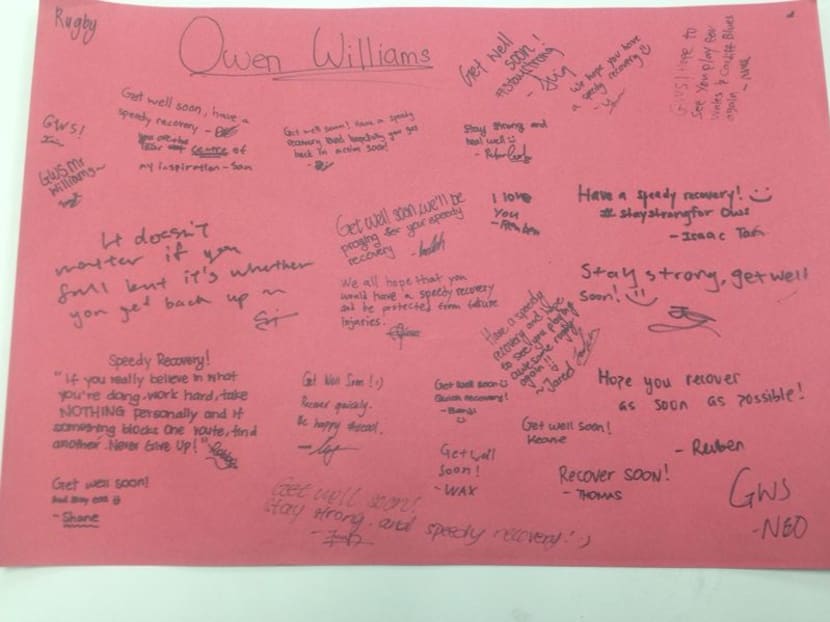 Rugby
Owen Williams
Get well
soon!
#staystrong
We hope you have
a speedy recovery
GWS! Hope to
See You play for
Wales & Cardiff Blues
again
GWS!
Get well soon, have a
speedy recovery -
centre of
my inspiration - Sam
Get well soon! Have a speedy
recovery and hopefully you get
back in action soon!
Stay strong and
heal well
GWS Mr
Williams
Get well soon, we'll be
praying for your speedy
recovery
I love
You
Have a speedy recovery! :)
#staystrongfor Ows
- Isaac Tan
It doesn't
matter if you
fall but it's whether
you get back up ~
We all hope that you
would have a speedy recovery
and be protected from future
injuries.
Have a speedy
recovery and
to see you playing
awesome rugby
again!!
~ Jared
Stay strong, get well
soon! :)
Speedy Recovery!
"If you really believe in what
you're doing, work hard, take
NOTHING personally and if
something blocks one route, find
another. Never Give Up!"
Get Well Soon! :)
Recover quickly.
Get well soon
Quick recovery!
Hope you recover
as soon as possible!
- Reuben
Get well soon!
Keane
Get well
Soon!
- WAX
Recover soon!
- THOMAS
GWS
- NEO
Get well soon!
And stay
- Shane
Get well soon!
Stay strong. and speedy recovery! :)